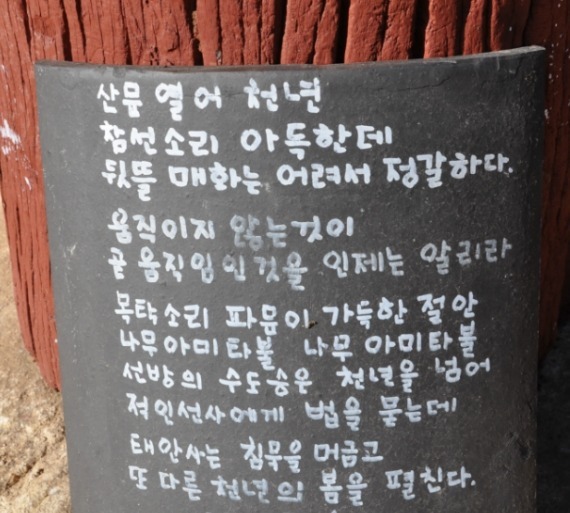 산문 열어 천년
참선소리 아득한데
뒷뜰 매화는 어려서 정갈하다.
움직이지 않는것이
곧 움직임인것을 인제는 알리라
목탁소리 파믐이 가득한 절안
나무아미타불 나무 아미타불
선방의 수도승은 천년을 넘어
적인선사에게 법을 묻는데
태안사는 침묵을 머금고
또 다른 천년의 봄을 펼친다.